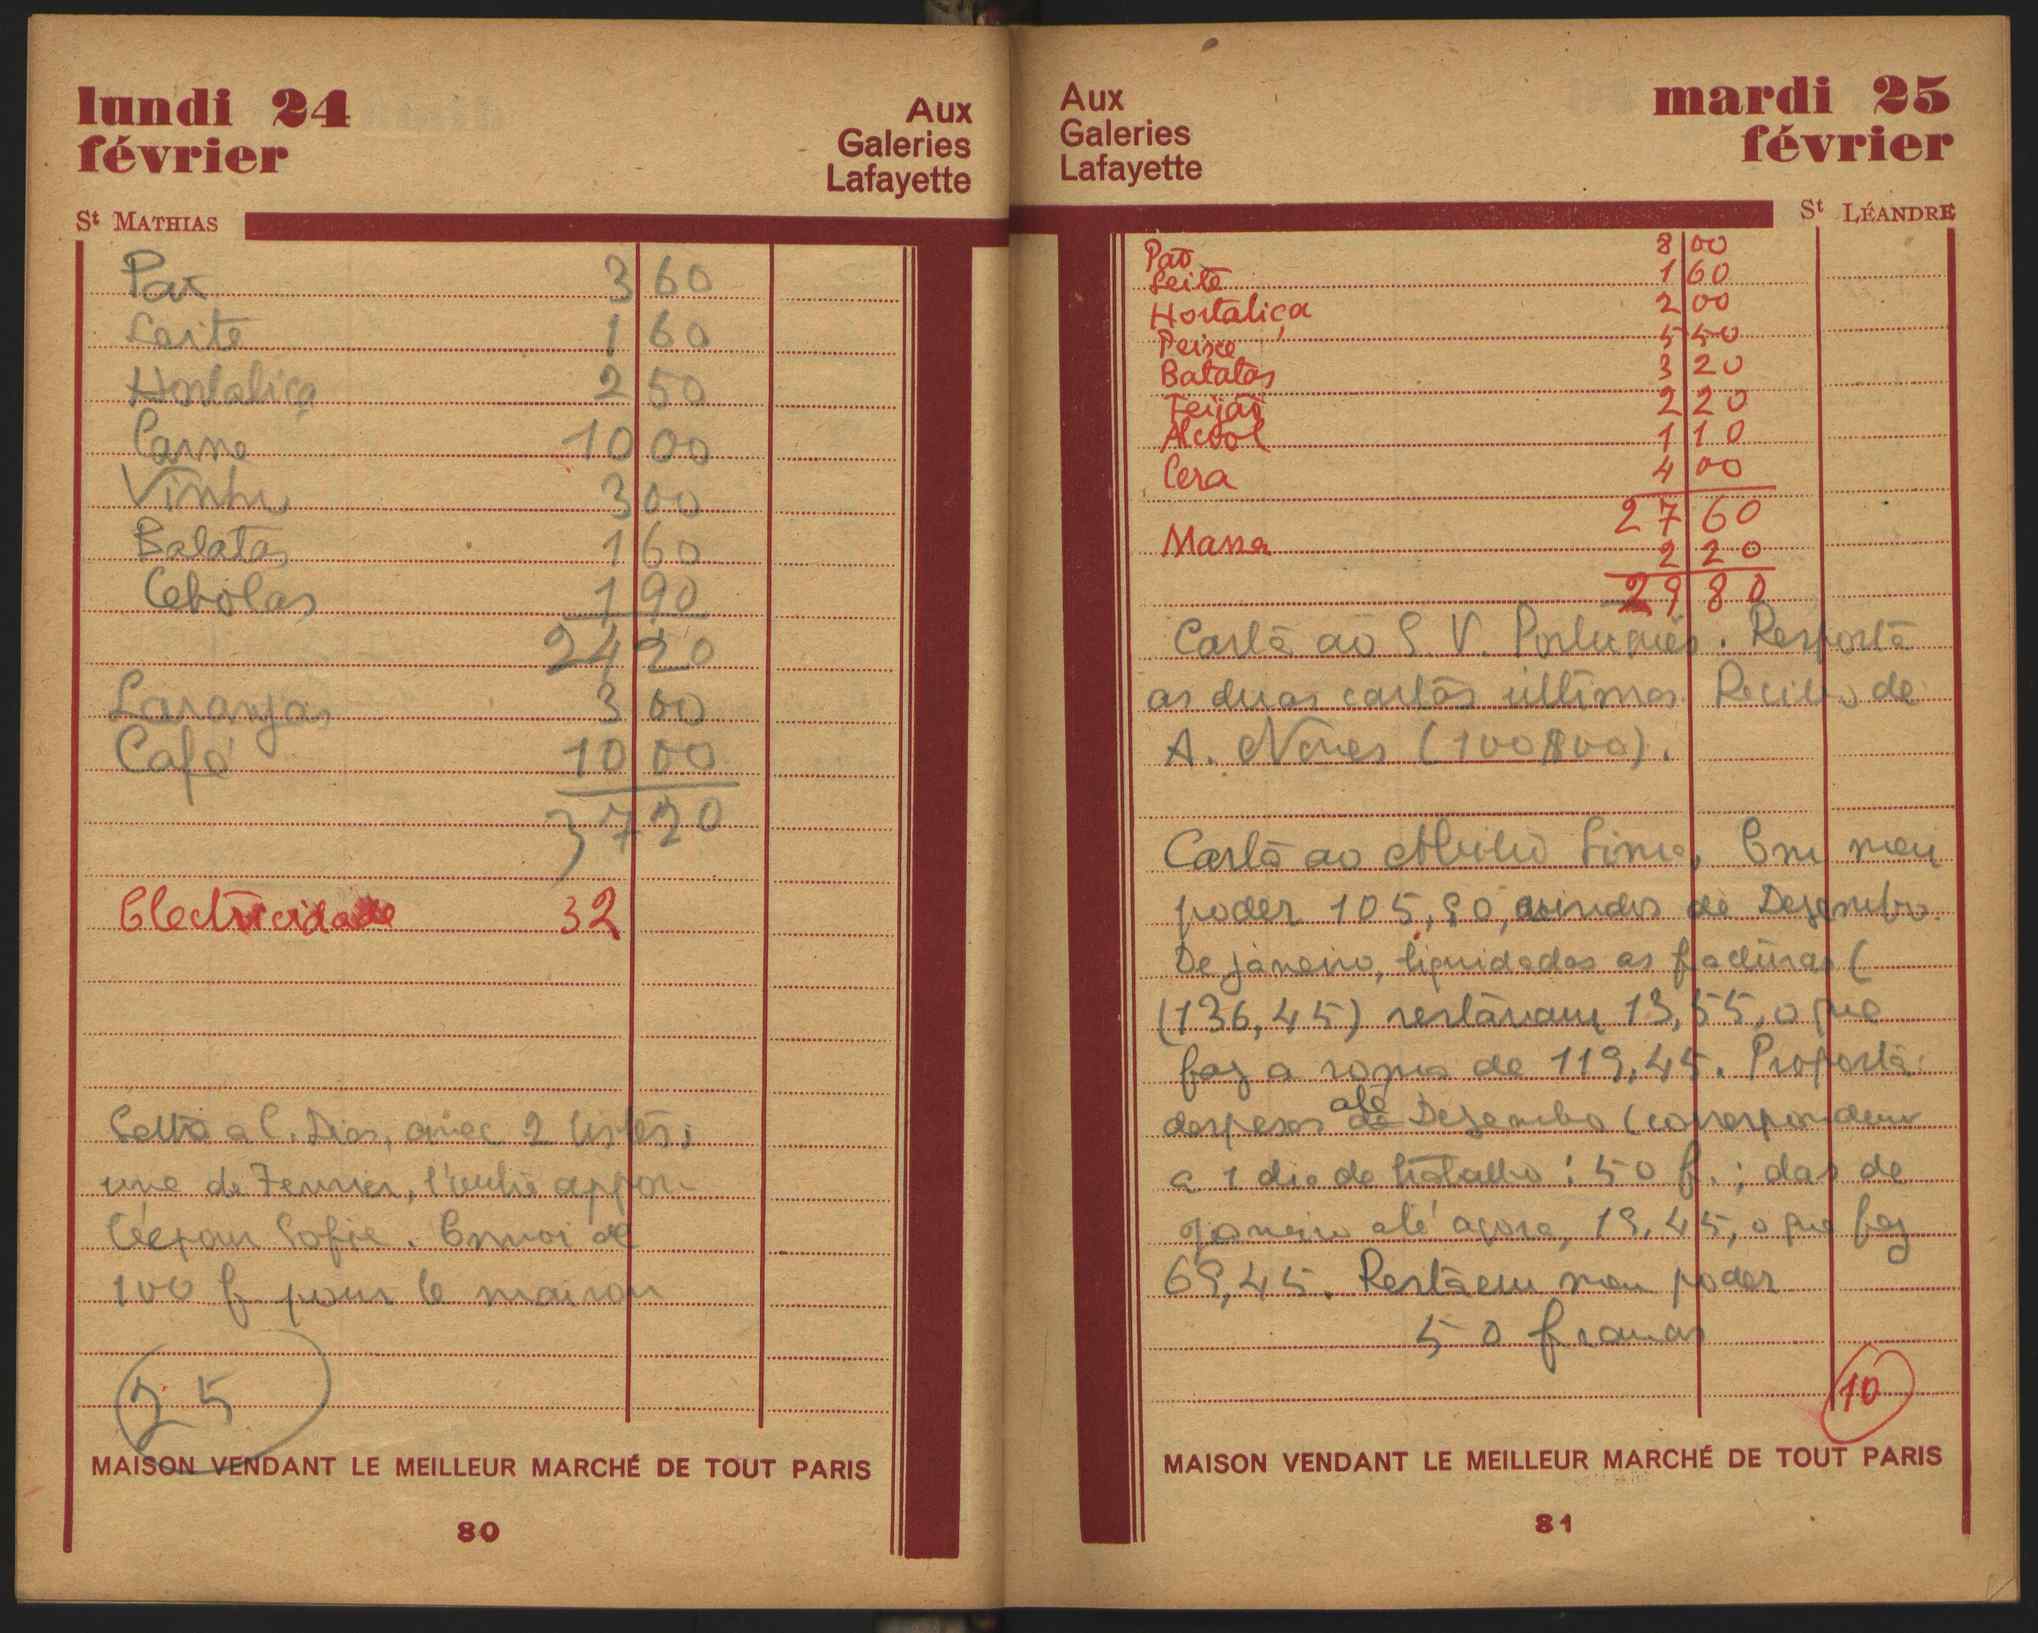 lundi 24
février
Aux
Galeries
Lafayette
St MATHIAS
Pão 3 60
Leite 1 60
Hortaliça 2 50
Carne 10 00
Vinho 3 00
Batatas 1 60
Cebolas 1 90
24 20
Laranjas 3 00
Café 10 00
37 20
Electricidade 32
a C. Dias, avec 2 listes,
une de Fevrier, l'autre
pour Sofie. Envoi de
100 f pour la maison
25
MAISON VENDANT LE MEILLEUR MARCHÉ DE TOUT PARIS
80
Aux
Galeries
Lafayette
mardi 25
février
St LÉANDRE
Pão 8 00
Leite 1 60
Hortaliça 2 00
Peixe 5 50
Batatas 3 20
Feijão 2 20
Alcool 1 10
Cera 4 00
27 60
Massa 2 20
29 80
Carta ao S. V. Português. Resposta
as duas cartas ultimas. Recibo de
A. Neves (100$00).
Carta ao Lima, Em meu
poder 105,90, vindos de Dezembro.
De janeiro, liquidadas as facturas (
(136,45) restavam 13,55, o que
faz a soma de 119,45. Proposta:
despesas até Dezembro (correspondem
a 1 dia de trabalho: 50 f.; das de
janeiro até agora, 19,45, o que faz
69,45. Resta em meu poder
50 francos
10
MAISON VENDANT LE MEILLEUR MARCHÉ DE TOUT PARIS
81